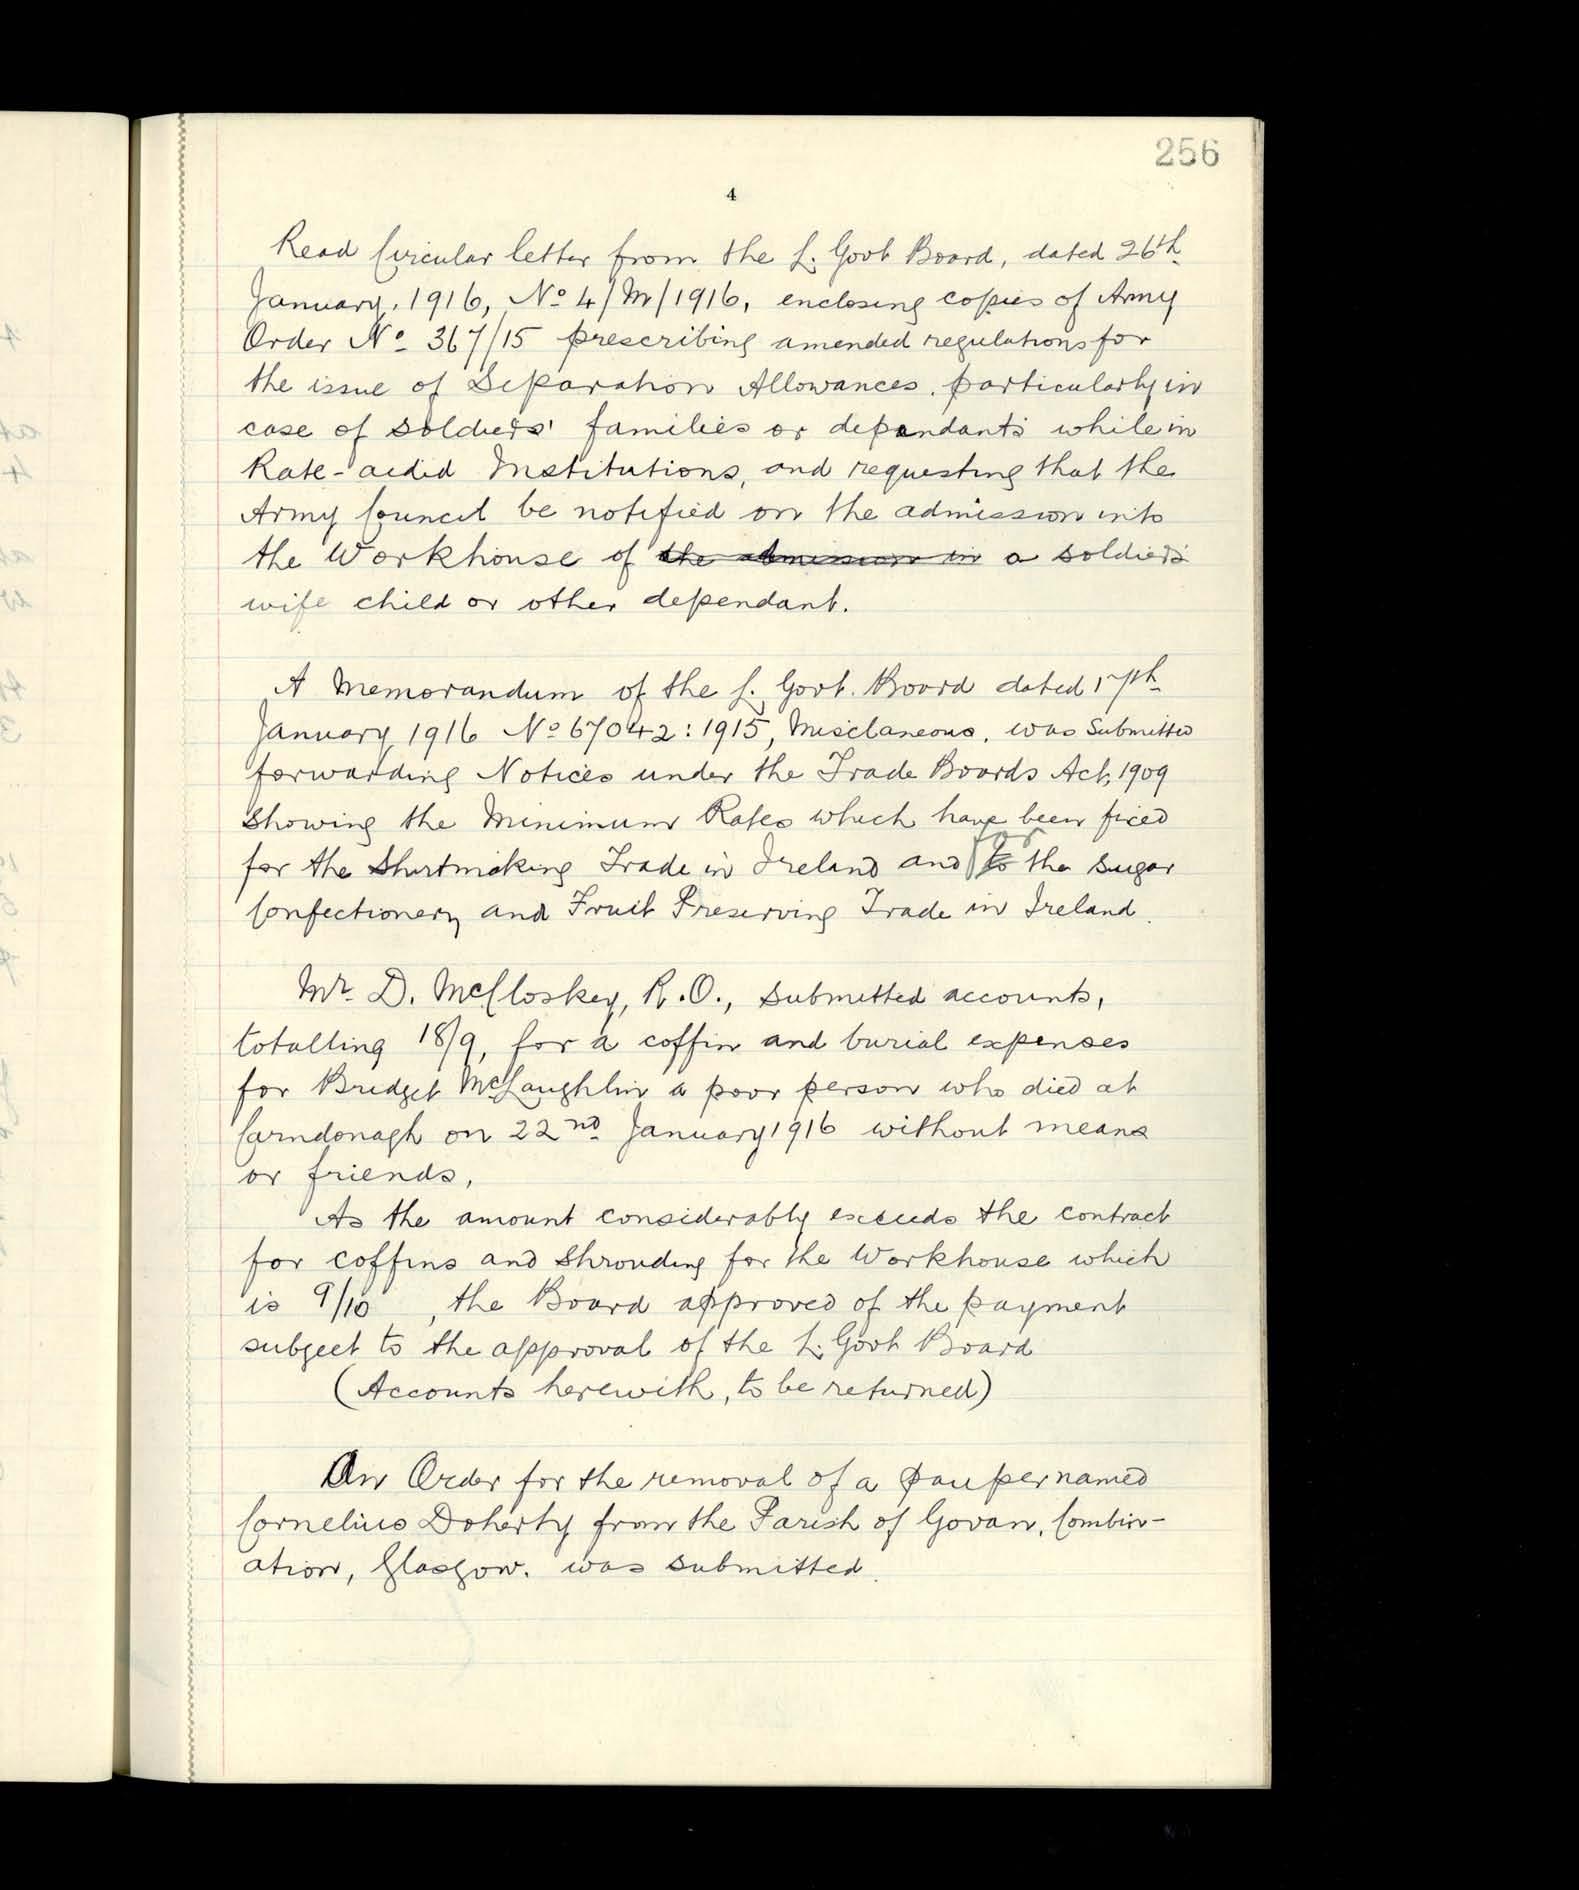 256
4
Read Circular letter from the L. Govt Board, dated 26th
January, 1916, No 4/M/1916, enclosing copies of Army
Order No 367/15 prescribing amended regulations for
the issue of Separation Allowances, particularly in
case of soldiers' families or dependants while in
Rate-aided Institutions, and requesting that the
Army Council be notified on the admission into
the Workhouse of the admission in a soldier's
wife child or other dependant.
A Memorandum of the L. Govt. Board dated 17th
January 1916 No 67042:1915, Misclaneous, was Submitted
forwarding Notices under the Trade Boards Act, 1909
showing the Minimum Rates which have been fixed
for the Shirtmaking Trade in Ireland and to for the Sugar
Confectionery and Fruit Preserving Trade in Ireland.
Mr. D. McCloskey, R.O., submitted accounts,
totalling 18/9, for a coffin and burial expenses
for Bridget McLaughlin a poor person who died at
Carndonagh on 22nd January 1916 without means
or friends.
As the amount considerably exceeds the contract
for coffins and shrouding for the Workhouse which
is 9/10, the Board approved of the payment
subject to the approval of the L. Govt Board
(Accounts herewith, to be returned)
An Order for the removal of a pauper named
Cornelius Doherty from the Parish of Govan, Combin-
ation, Glasgow. was submitted.